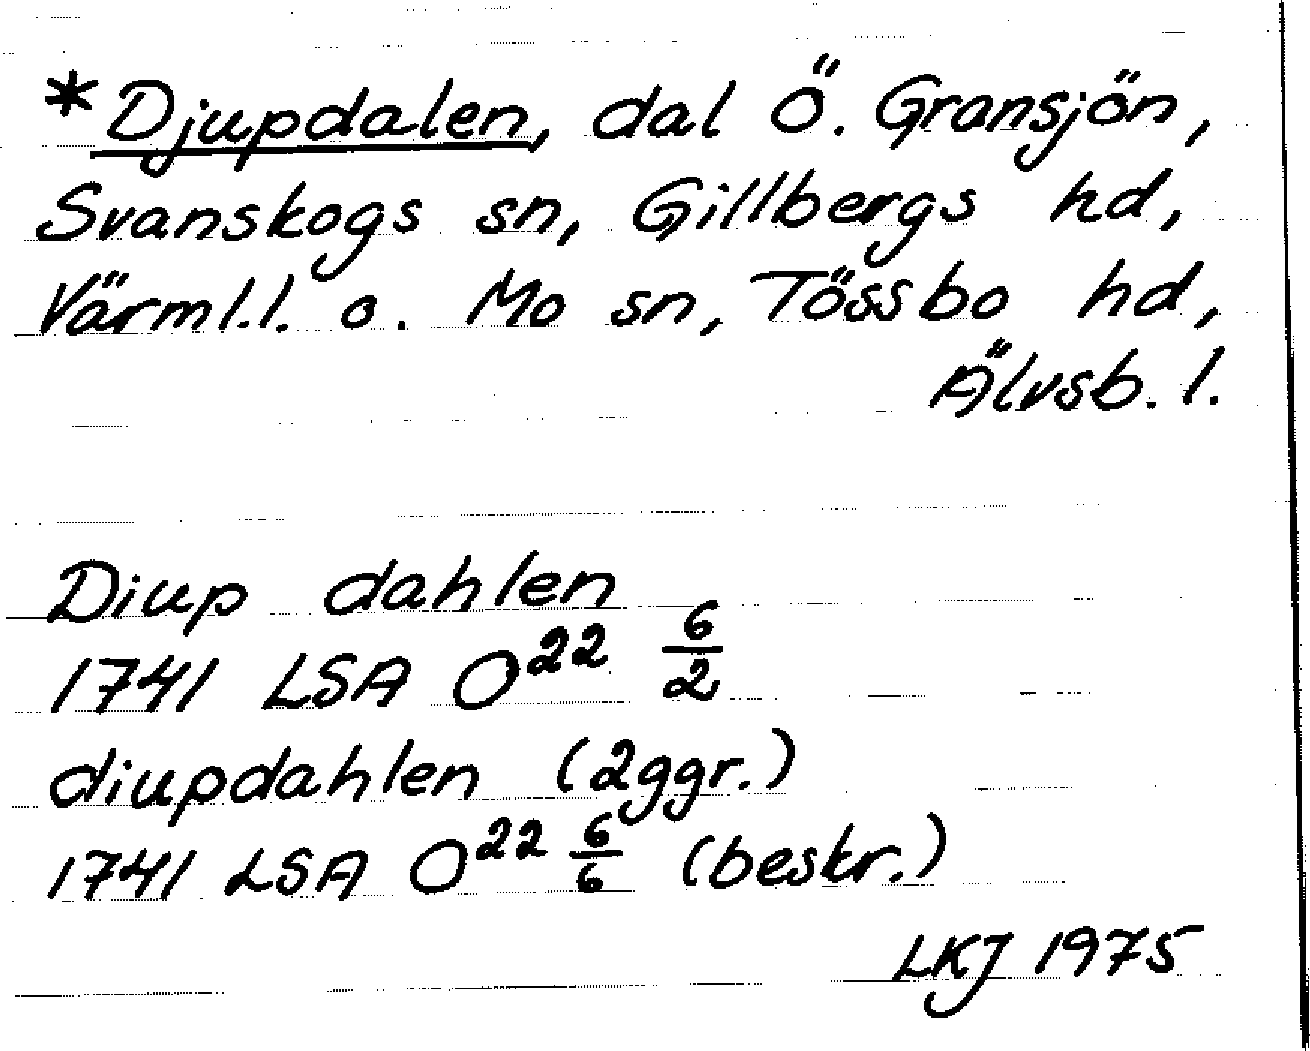 *Djupdalen, dal Ö. Gransjön,
Svanskogs sn, Gillbergs hd,
Värml.l. o. Mo sn, Tössbo hd,
Älvsb. l.
Diup dahlen
1741 LSA O²² 6/2
diupdahlen (2ggr.)
1741 LSA O²² 6/6 (beskr.)
LKJ 1975